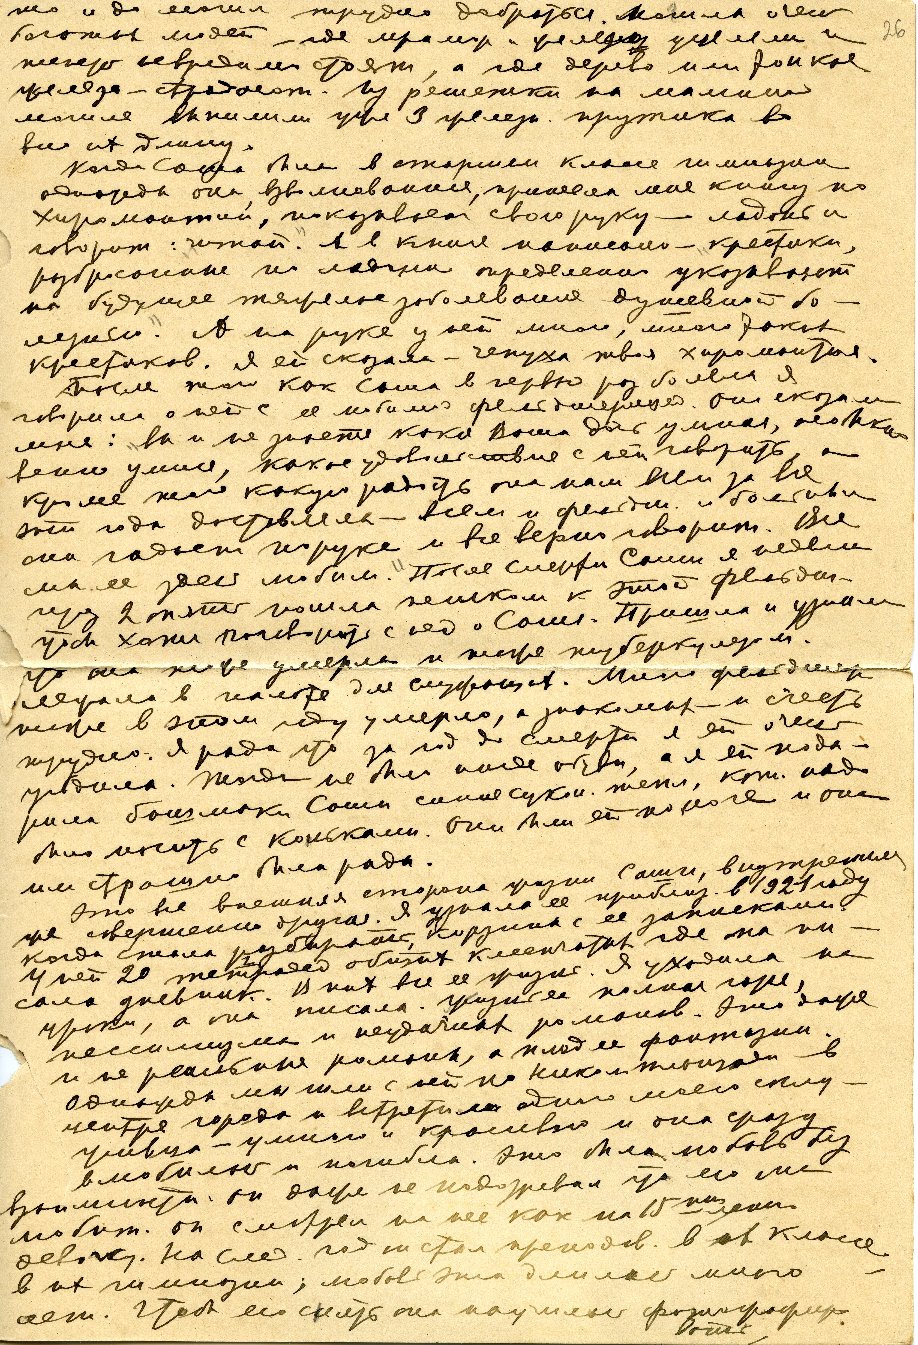 26
что и до могил трудно добраться. Могила очень
богатых людей — где мрамор и железо уцелели и
ничего невредимо стоят, а где дерево или тонкое
железо — страдают. Из решетки на маминой
могиле выпилили уже 3 железн. прутика во
всю их длину.
Когда Саша была в старшем классе гимназии
однажды она, взволнованная, принесла мне книгу по
хиромантии, показывает свою руку — ладонь и
говорит: "читай". А в книге написано — "крестики,
разбросанные по ладони определенно указывают
на будущее тяжелое заболевание душевной бо-
лезнью". А на руке у ней много, много таких
крестиков. Я ей сказала — чепуха твоя хиромантия.
После того как Саша в первый раз болела я
говорила о ней с ее любимой фельдшерицей. Она сказала
мне: "вы и не знаете какая Ваша дочь умная,
умная, какое удовольствие с ней говорить, а
кроме того какую радость она нам всем за все
эти года доставляла — всем и фельдш. и больным
она гадает по руке и все верно говорит. Все
мы ее здесь любим." После смерти Саши я недели
чрез 2 опять пошла пешком к этой фельдш-
це хотя поговорить с ней о Саше. Пришла и узнала
что она тоже умерла и тоже туберкулезом.
Лежала в палате для служащих. Много фельдшер
тоже в этом году умерло, а знакомых — и счесть
трудно. Я рада что за год до смерти я ей очень
угодила. Тогда не было нигде обуви, а я ей пода-
рила башмаки Саши синие сукон. тепл, кот. надо
было носить с коньками. Они были ей по ноге и она
им страшно была рада.
Это все внешняя сторона жизни Саши, внутренняя
же совершенно другая. Я узнала ее приблиз. в 1921 году
когда стала разбирать корзинку с ее записками.
У ней 20 тетрадей общих клеенчатых где она пи-
сала дневник. В них вся ее жизнь. Я уходила на
уроки, а она писала. Жизнь ее полная горя,
пессимизма и неудачных романов. Это даже
и не реальные романы, а плод ее фантазии.
Однажды мы шли с ней по в
центре города и встретили одного моего сослу-
живца — умного и красивого и она сразу
влюбилась и погибла. Это была любовь без
взаимности. Он даже не подозревал что его она
любит. Он смотрел на нее как на 15 летнюю
девочку. На след. год он стал преподав. в их классе
в их гимназии; любовь эта длилась много
лет. Чтоб его снять она научилась фотографир-
овать